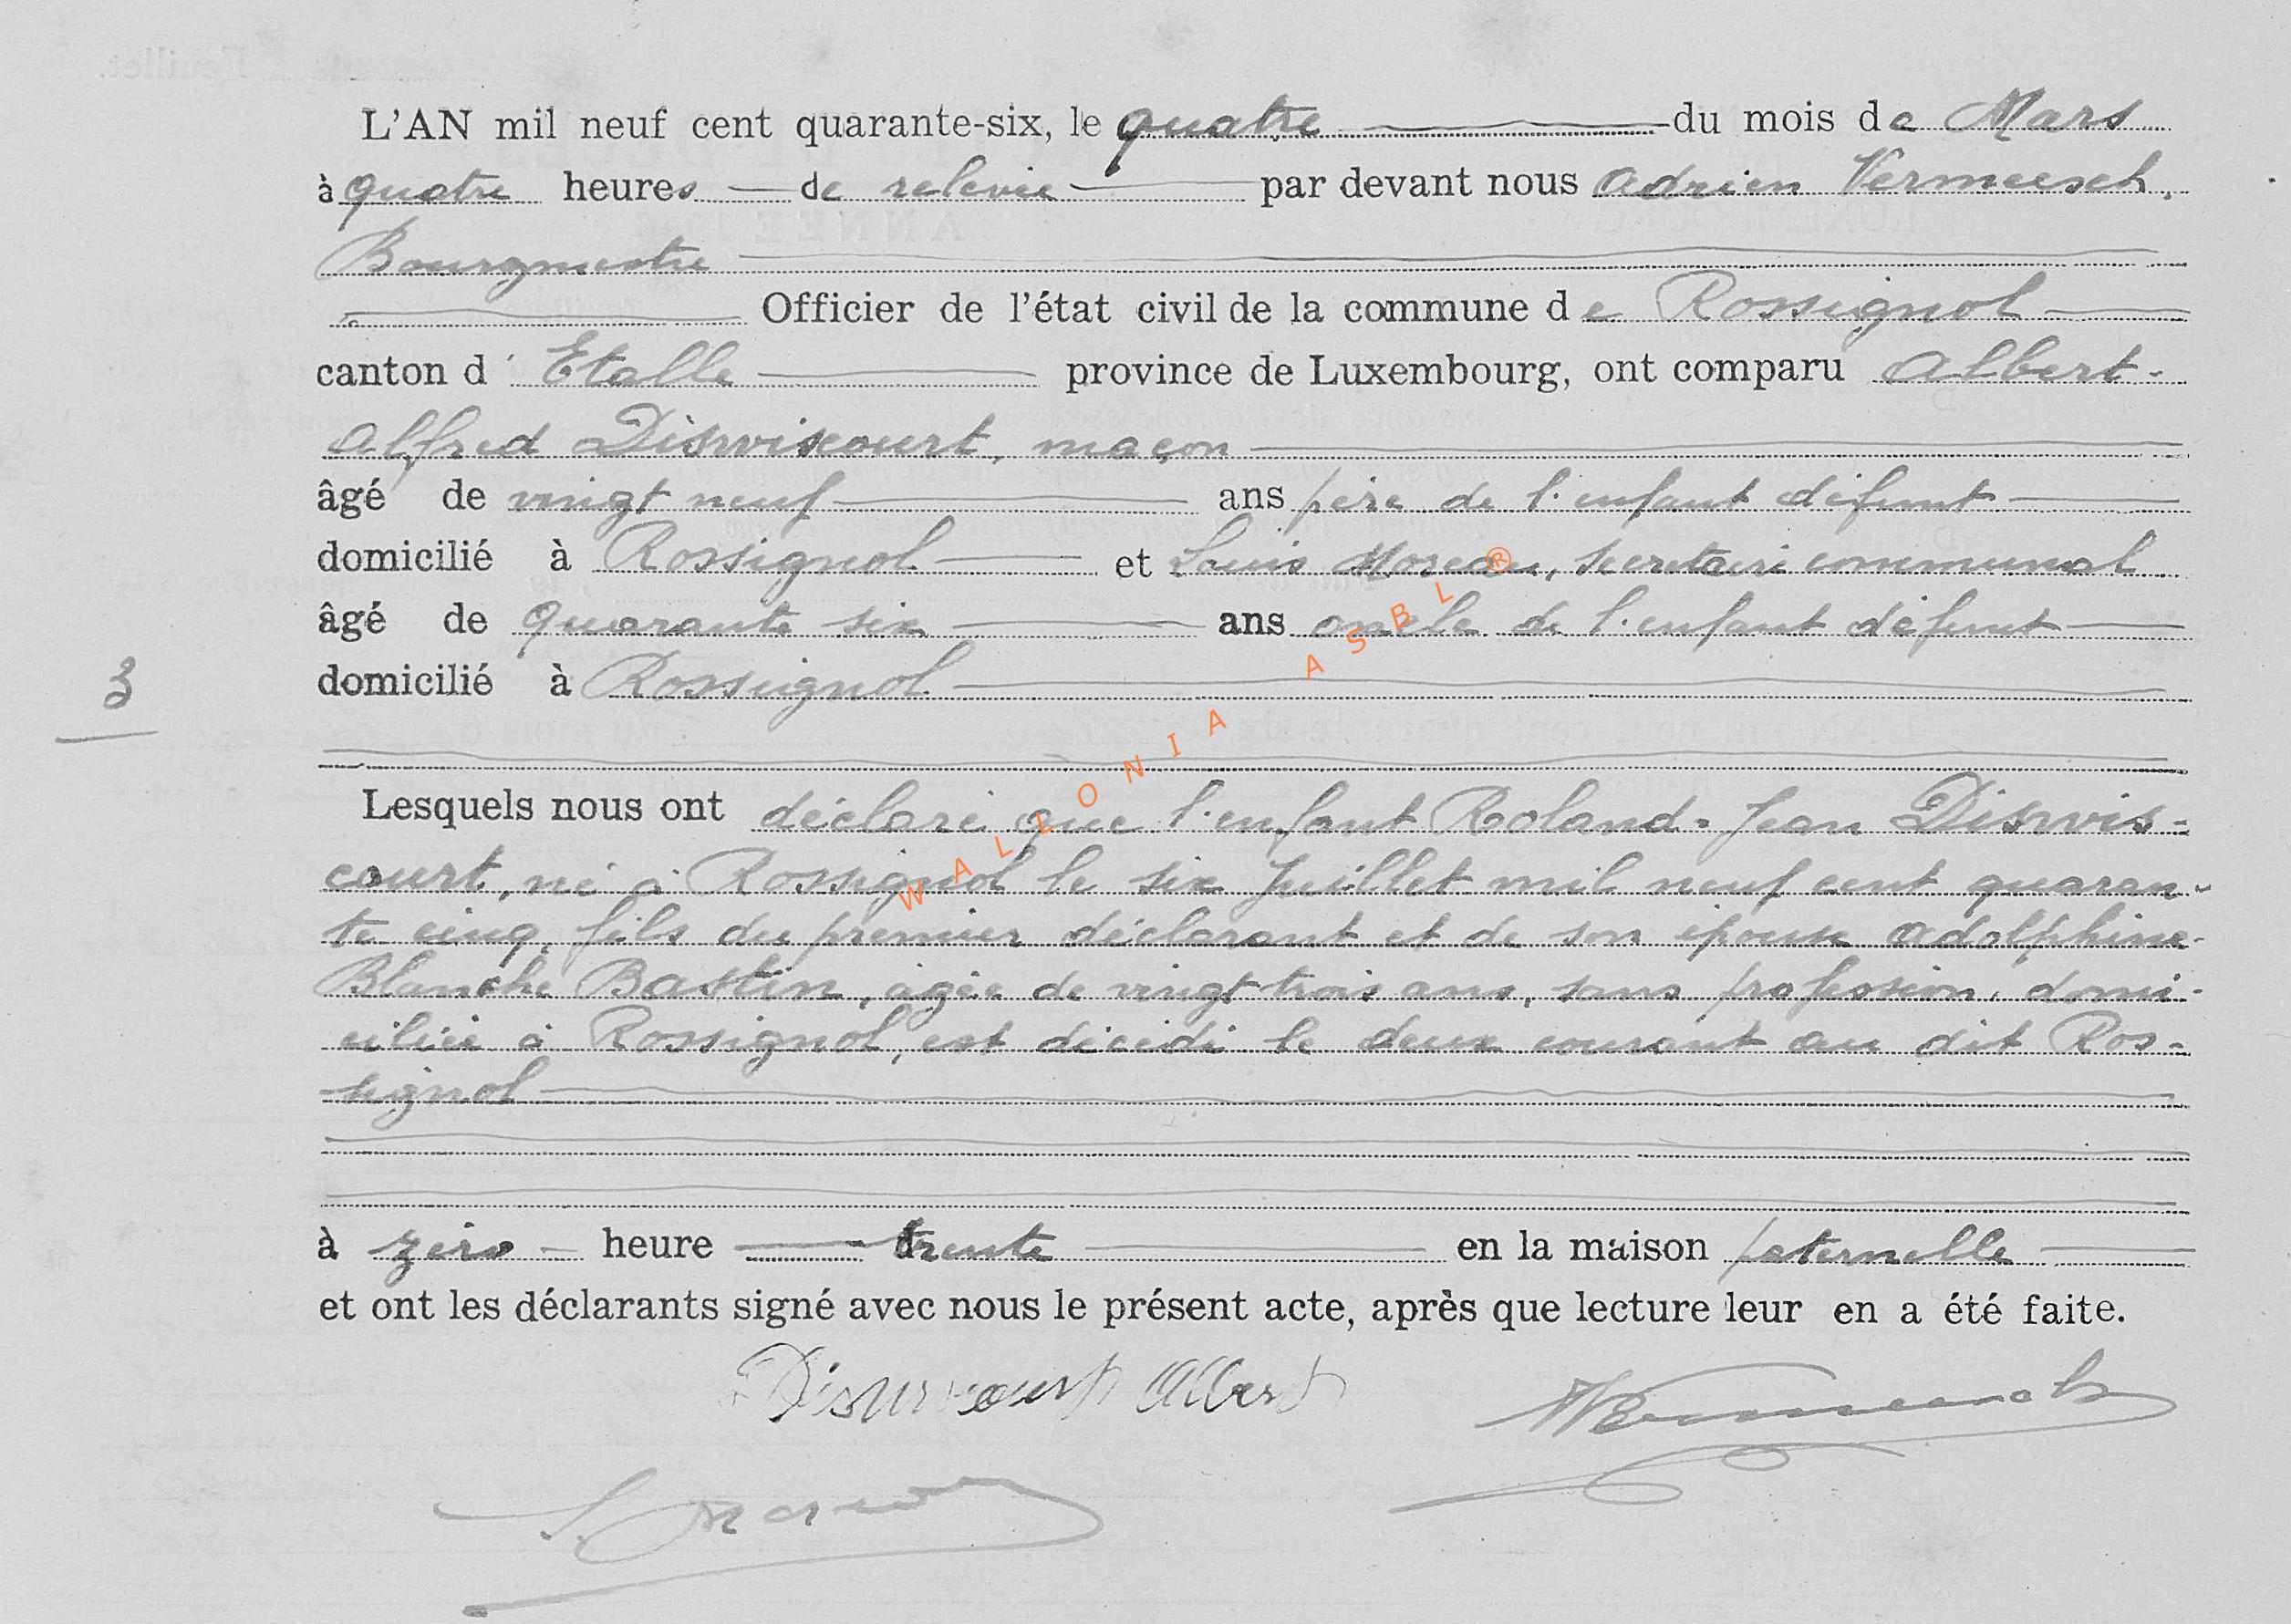 L'AN mil neuf cent quarante-six, le quatre du mois de Mars
à quatre heures de relevée par devant nous Adrien Vermeesch,
Bourgmestre
Officier de l'état civil de la commune de Rossignol
canton d'Etalle province de Luxembourg, ont comparu Albert-
Alfred Disviscourt, maçon
âgé de vingt neuf ans père de l'enfant défunt
domicilié à Rossignol et Louis Moreau, secrétaire communal
âgé de quarante six ans oncle de l'enfant défunt
domicilié à Rossignol
3
Lesquels nous ont déclaré que l'enfant Roland-Jean Disvis-
court, né à Rossignol le six Juillet mil neuf cent quaran-
te cinq, fils du premier déclarant et de son épouse Adolphine-
Blanche Bastin, âgée de vingt trois ans, sans profession, domi-
ciliée à Rossignol, est décédé le deux courant au dit Ros-
signol
à zéro heure trente en la maison paternelle
et ont les déclarants signé avec nous le présent acte, après que lecture leur en a été faite.
Disviscourt Albert
AVermeesch
L Moreau
WALLONIA ASBL ®